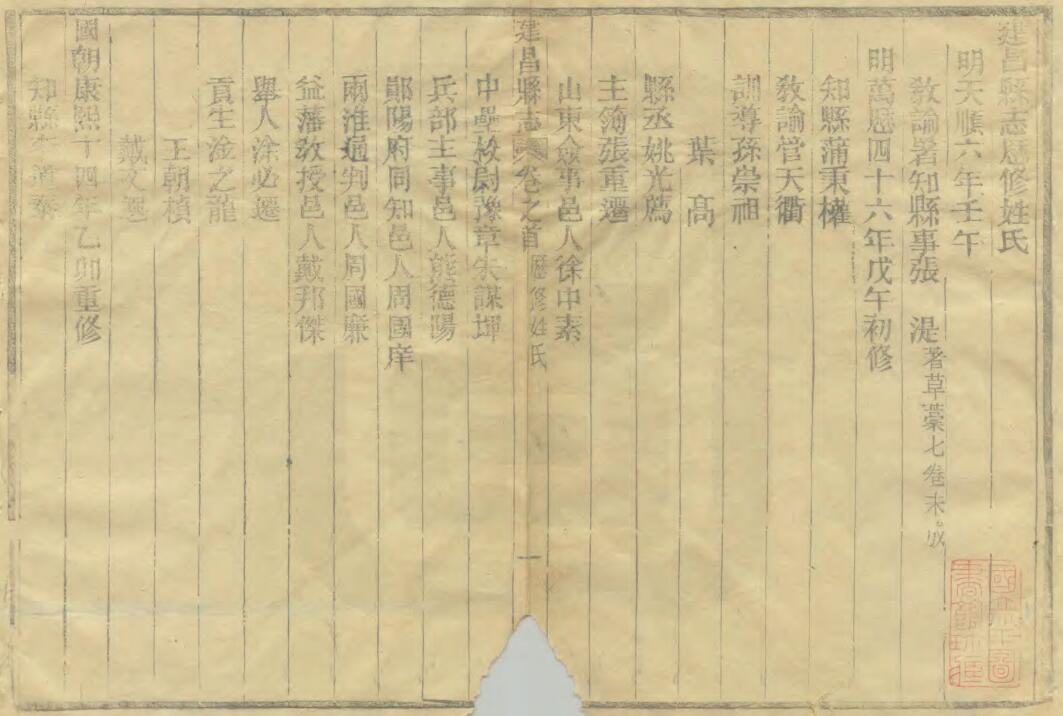 建昌縣志歷修姓氏
明天順六年壬午
敎諭署知縣事張湜著草藁七卷未成
明萬歷四十六年戊午初修
知縣蒲秉權
敎諭管天衢
訓導孫崇祖
葉高
縣丞姚光廌
主簿張重遷
山東僉事邑人徐中素
建昌縣志卷之首 歷修姓氏 一
中壘校尉豫章朱謀㙔
兵部主事邑人熊德陽
鄖陽府同知邑人周國庠
兩淮通判邑人周國
益藩敎授邑人戴邦傑
舉人涂必遷
貢生淦之龍
王朝楨
戴文
國朝康熙十四年乙卯重修
知縣李道泰